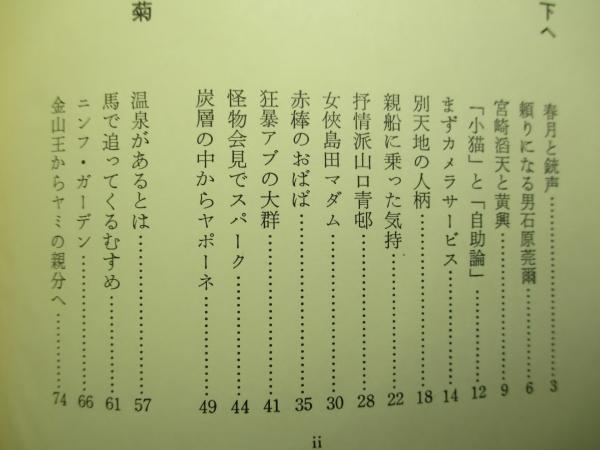 下へ
春月と銃声 3
頼りになる男石原莞爾 6
宮崎滔天と黄興 9
「小猫」と「自助論」 12
まずカメラサービス 14
別天地の人柄 18
親船に乗った気持 22
抒情派山口青邨 28
女俠島田マダム 30
赤棒のおばば 35
狂暴アブの大群 41
怪物会見でスパーク 44
炭層の中からヤポーネ 49
菊
温泉があるとは 57
馬で追ってくるむすめ 61
ニンフ・ガーデン 66
金山王からヤミの親分へ 74
ii